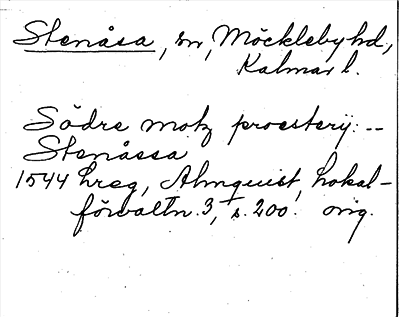 Stenåsa, sn, Möckleby hd,
Kalmar l.
Södre motz proesterij: --
Stenåssa
1544 hreg, Almquist, Lokal-
förvaltn. 3, s. 200. orig.